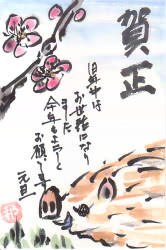 賀正
旧年中は
お世話になり
ました
今年もよろしく
お願います
元旦